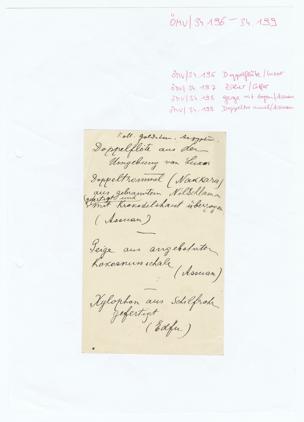 ÖMV/34 196 - 34 199
ÖMV/34 196 Doppelflöte/Luxor
ÖMV/34 197
ÖMV/34 198 Geige mit Bogen/Assuan
ÖMV/34 199 Doppeltrommel/Assuan
Doppelflöte aus der
Umgebung von Luxor
Doppeltrommel (Nakkara)
aus gebranntem Nilschlamm
gefertigt und
mit Krokodilshaut überzogen
(Assuan)
Geige aus
Kokosnusschale
(Assuan)
Xylophon aus Schilfrohr
gefertigt
(Edfu)